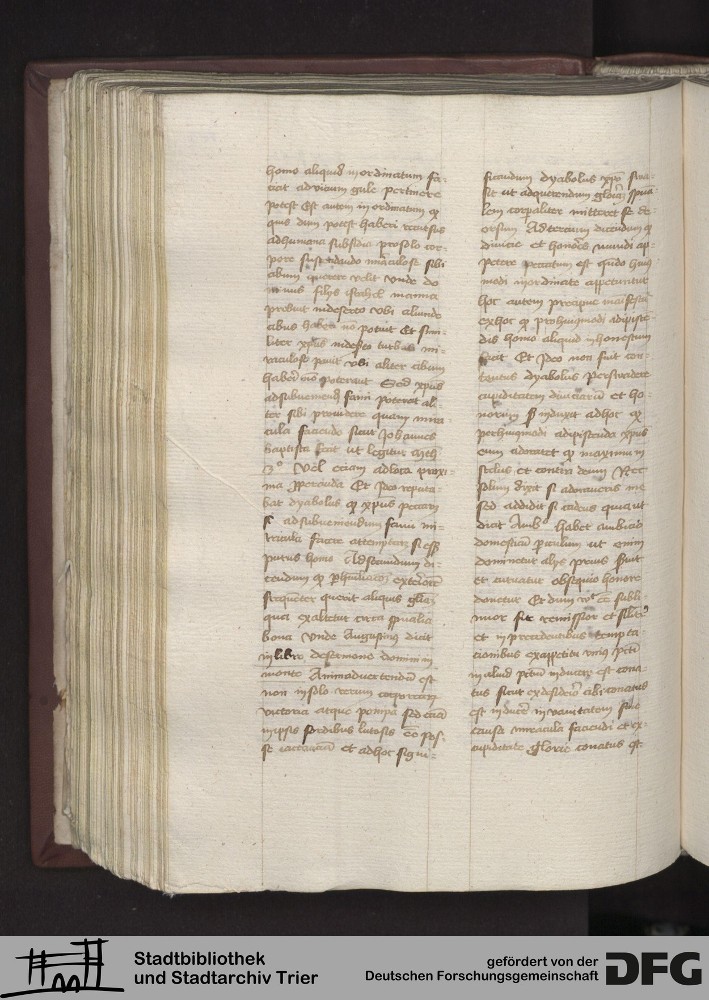 homo aliquid inordinatum fa-
ciat ad vicium gule pertinere
potest Est autem inordinatum q
quis dum potest haberi recursus
ad humana subsidia pro solo cor-
pore sustentando miraculose sibi
cibum querere velit Unde do
minus filijs israhel manna
prebuit in deserto ubi aliunde
cibus haberi non potuit Et simi-
liter xpus in deserto turbas mi-
raculose pavit ubi aliter cibum
haberi non poterant Sed xpus
ad subveniendum fami poterat ali-
ter sibi providere quam mira-
cula faciendo sicut Johannes
baptista fecit ut legitur
3° Vel eciam ad loca proxi-
ma Et ideo reputa-
bat dyabolus q xpus peccaret
si ad subveniendum fami mi-
racula facere attemptaret si esset
purus homo Ad secundum di-
cendum q per exteriorem
frequenter querit aliquis gloriam
qua exaltetur circa spualia
bona Unde Augustinus dicit
in libro de sermone domini in
monte Animadvertendum est
non in solo rerum corporearum
victoria atque pompa sed eciam
in ipsis sordibus lutosis esse pos-
se iactanciam et ad hoc signi-
ficandum dyabolus xpo sua-
sit ut ad querendum gloriam spua
lem corporaliter mitteret se de-
orsum Ad tercium dicendum q
divicie et honores mundi ap-
petere peccatum est quando huius
modi inordinate appetuntur
hoc autem precipue manifestum
ex hoc q pro huiusmodi adipiscen-
dis homo aliquid inhonestum
facit Et ideo non fuit con-
tentus dyabolus persuadere
cupiditatem diviciarum et ho-
norum sed induxit ad hoc q
pro huiusmodi adipiscendis xpus
eum adoraret q maximum
scelus et contra deum Nec
solum dixit si adoraveris me
sed addidit si cadens quia ut
dicit Amb° habet ambicio
domesticum periculum ut enim
dominetur alijs prius servit
et curvatur obsequio honore
donetur Et dum vult esse subli-
mior fit remissior et similiter
et in precedentibus tempta-
cionibus ex appetitu unius peccati
in aliud peccatum inducere est cona-
tus sicut ex desiderio cibi conatus
est inducere in vanitatem sine
causa miracula faciendi et ex-
cupiditate glorie conatus est
Stadtbibliothek
und Stadtarchiv Trier
gefördert von der
Deutschen Forschungsgemeinschaft
DFG